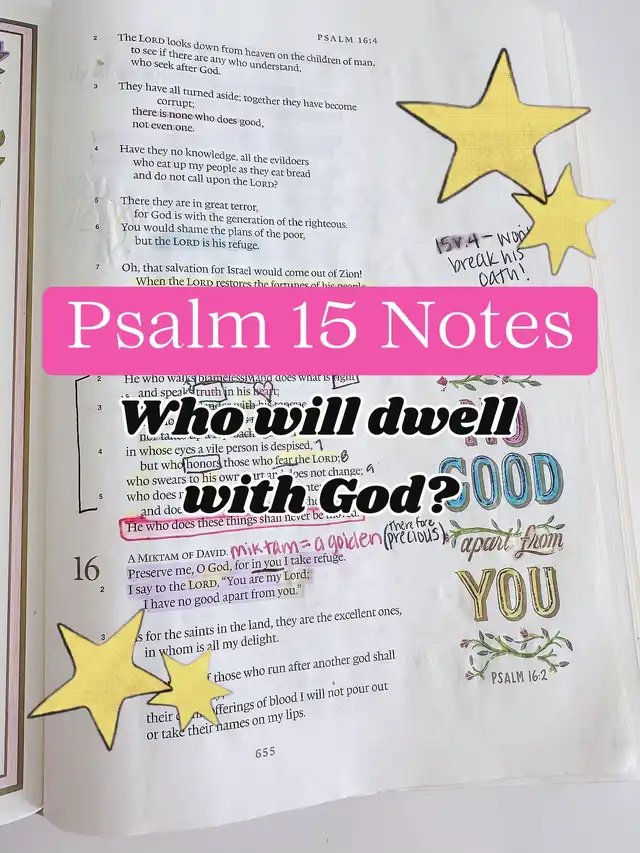 PSALM 16:4
2 The LORD looks down from heaven on the children of man,
to see if there are any who understand,
who seek after God.
3 They have all turned aside; together they have become
corrupt;
there is none who does good,
not even one.
4 Have they no knowledge, all the evildoers
who eat up my people as they eat bread
and do not call upon the LORD?
5 There they are in great terror,
for God is with the generation of the righteous.
6 You would shame the plans of the poor,
but the LORD is his refuge.
15 v.4 - won't
break his
oath!
7 Oh, that salvation for Israel would come out of Zion!
When the LORD restores the fortunes of his people
Psalm 15 Notes
2 He who walks blamelessly and does what is right
and speaks truth in his heart;
3
Who will dwell
with God?
4 in whose eyes a vile person is despised, 7
but who honors those who fear the LORD; 8
who swears to his own and does not change; 9
5 who does
and
He who does these things shall never be moved.
GOOD
apart from
YOU
PSALM 16:2
16 A MIKTAM OF DAVID. miktam = a golden (therefore precious)
Preserve me, O God, for in you I take refuge.
2 I say to the LORD, "You are my Lord;
I have no good apart from you."
3 As for the saints in the land, they are the excellent ones,
in whom is all my delight.
those who run after another god shall
their offerings of blood I will not pour out
or take their names on my lips.
655